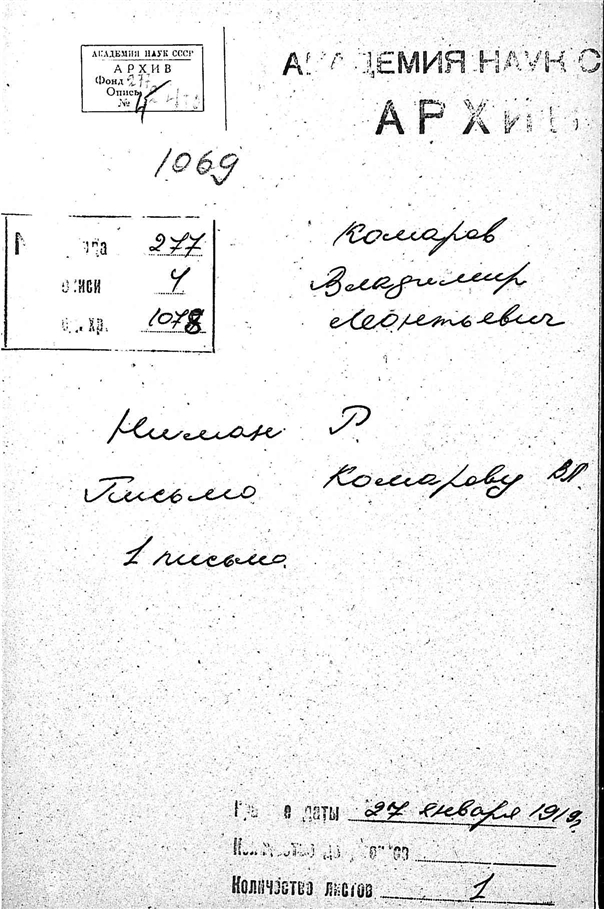 АКАДЕМИЯ НАУК СССР
АРХИВ
Фонд 277
Опись 4
№
АКАДЕМИЯ НАУК С
АРХИВ
1069
277
описи 4
хр. 1078
Комаров
Владимир
Леонтьевич
Ниман Р.
Письмо Комарову ВЛ.
1 письмо.
даты 27 января 1919г.
Количество
Количество листов 1